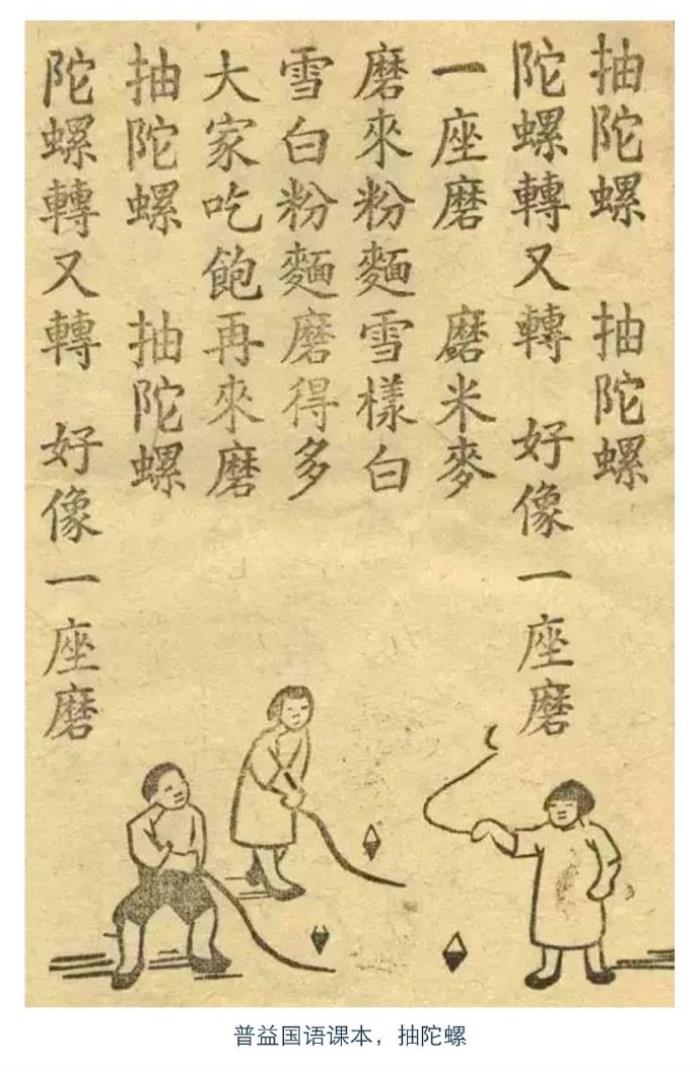 抽陀螺 抽陀螺
陀螺轉又轉 好像一座磨
一座磨 磨米麥
磨來粉麵雪樣白
雪白粉麵磨得多
大家吃飽再來磨
抽陀螺 抽陀螺
陀螺轉又轉 好像一座磨
普益国语课本，抽陀螺